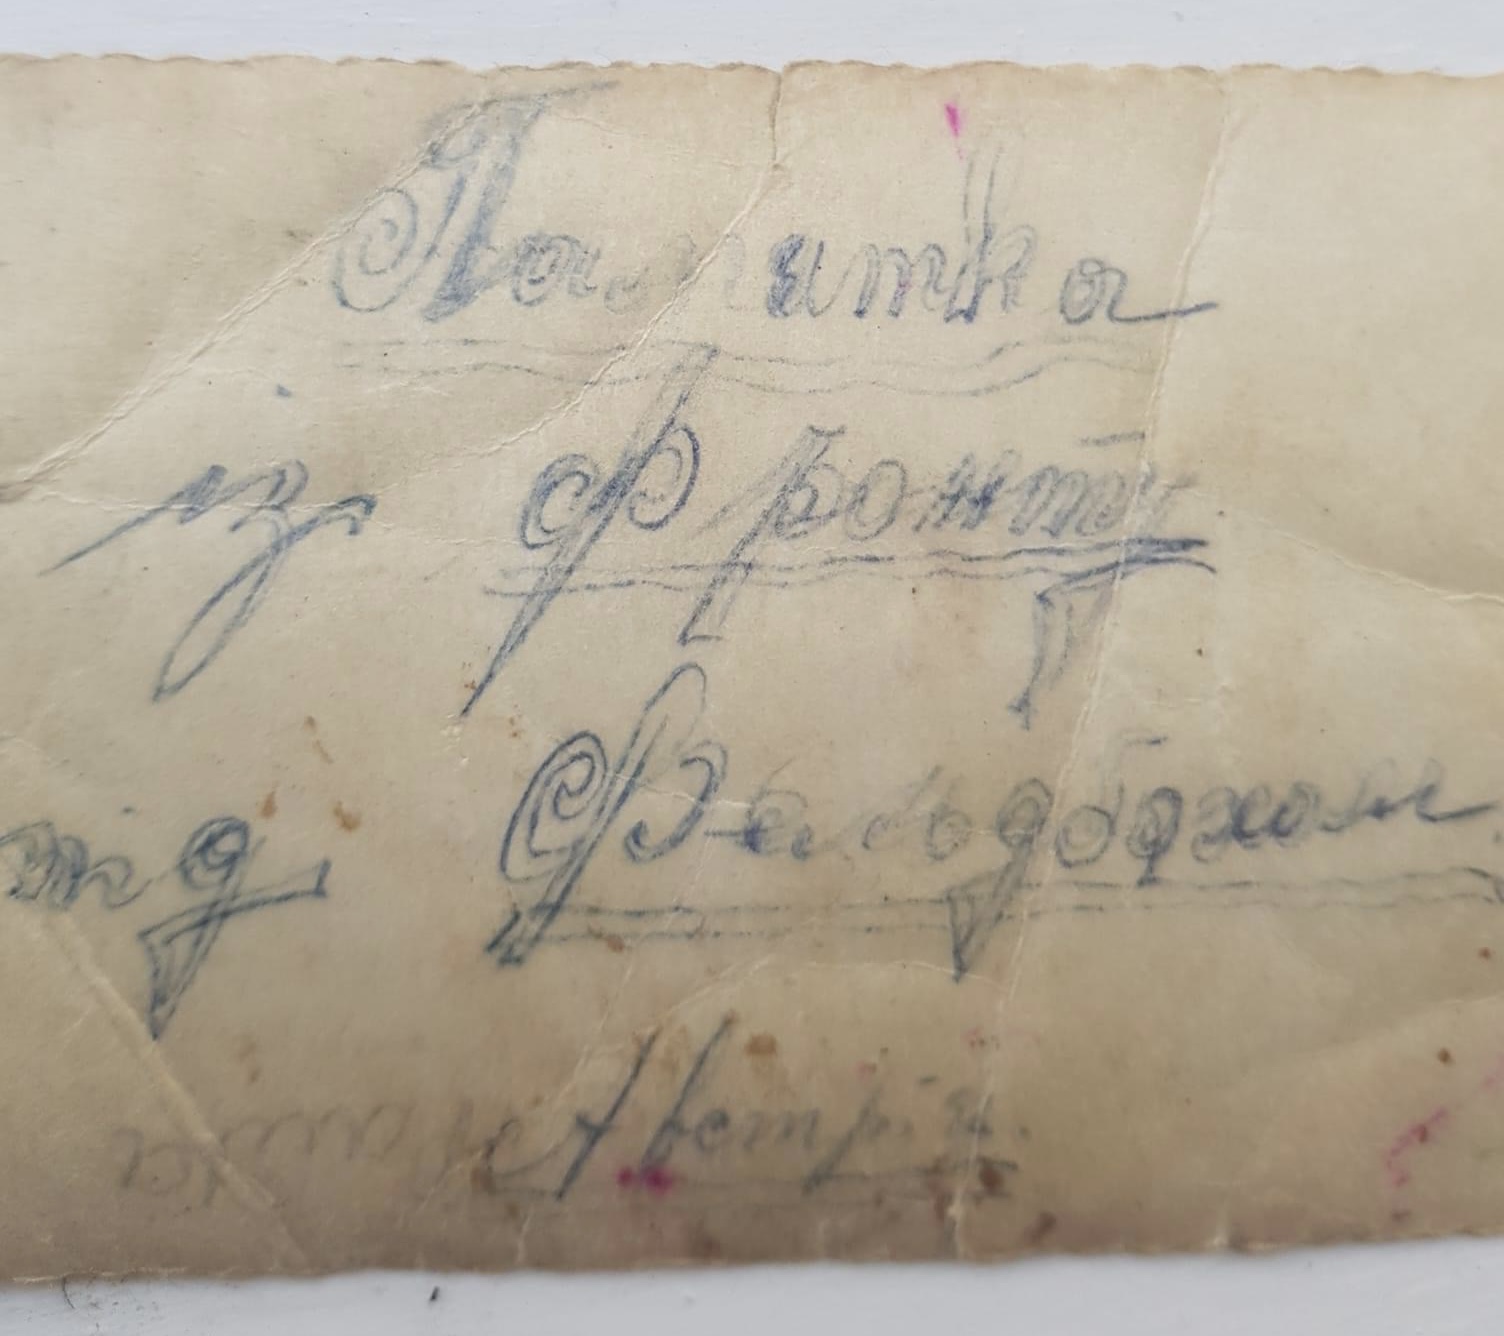 Памятка
із фронту
під Фельдбахом
Австрія.